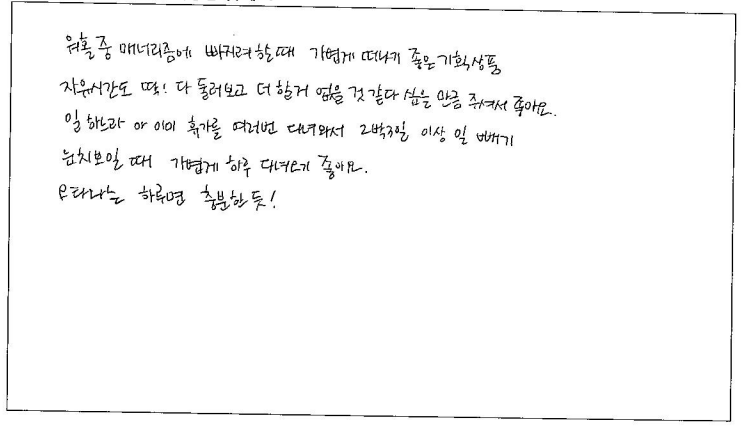 워홀 중 매너리즘에 빠지려 할때 가볍게 떠나기 좋은 기획상품
자유시간도 딱! 다 둘러보고 더 할거 없을 것 같다 싶을 만큼 주셔서 좋아요.
일 하느라 or 이미 휴가를 여러번 다녀와서 2박3일 이상 일 빼기
눈치보일 때 가볍게 하루 다녀오기 좋아요.
오타와는 하루면 충분한 듯!